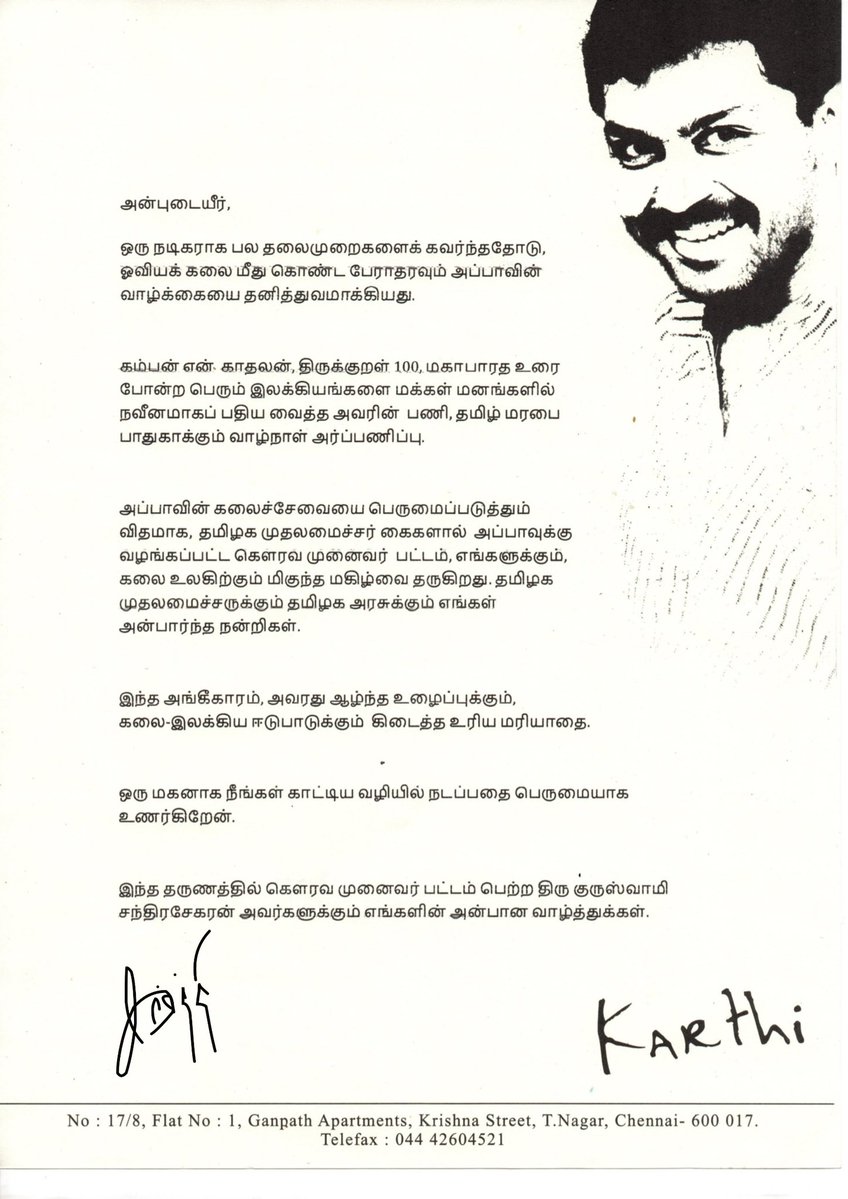 அன்புடையீர்,
ஒரு நடிகராக பல தலைமுறைகளைக் கவர்ந்ததோடு,
ஓவியக் கலை மீது கொண்ட பேராதரவும் அப்பாவின்
வாழ்க்கையை தனித்துவமாக்கியது.
கம்பன் என் காதலன், திருக்குறள் 100, மகாபாரத உரை
போன்ற பெரும் இலக்கியங்களை மக்கள் மனங்களில்
நவீனமாகப் பதிய வைத்த அவரின் பணி, தமிழ் மரபை
பாதுகாக்கும் வாழ்நாள் அர்ப்பணிப்பு.
அப்பாவின் கலைச்சேவையை பெருமைப்படுத்தும்
விதமாக, தமிழக முதலமைச்சர் கைகளால் அப்பாவுக்கு
வழங்கப்பட்ட கௌரவ முனைவர் பட்டம், எங்களுக்கும்,
கலை உலகிற்கும் மிகுந்த மகிழ்வை தருகிறது. தமிழக
முதலமைச்சருக்கும் தமிழக அரசுக்கும் எங்கள்
அன்பார்ந்த நன்றிகள்.
இந்த அங்கீகாரம், அவரது ஆழ்ந்த உழைப்புக்கும்,
கலை-இலக்கிய ஈடுபாடுக்கும் கிடைத்த உரிய மரியாதை.
ஒரு மகனாக நீங்கள் காட்டிய வழியில் நடப்பதை பெருமையாக
உணர்கிறேன்.
இந்த தருணத்தில் கௌரவ முனைவர் பட்டம் பெற்ற திரு குருஸ்வாமி
சந்திரசேகரன் அவர்களுக்கும் எங்களின் அன்பான வாழ்த்துக்கள்.
கார்த்தி
Karthi
No : 17/8, Flat No : 1, Ganpath Apartments, Krishna Street, T.Nagar, Chennai- 600 017.
Telefax : 044 42604521